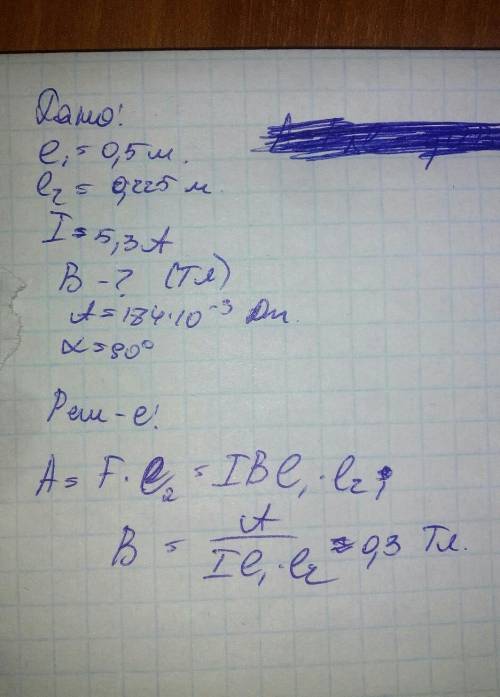 Дано:
l₁ = 0,5 м.
l₂ = 0,225 м.
I = 5,3 А
В - ? (Тл)
А = 184·10⁻³ Дж.
α = 90°
Реш-е:
A = F · l₂ = IBl₁ · l₂;
B = A / Il₁ · l₂ ≈ 0,3 Тл.